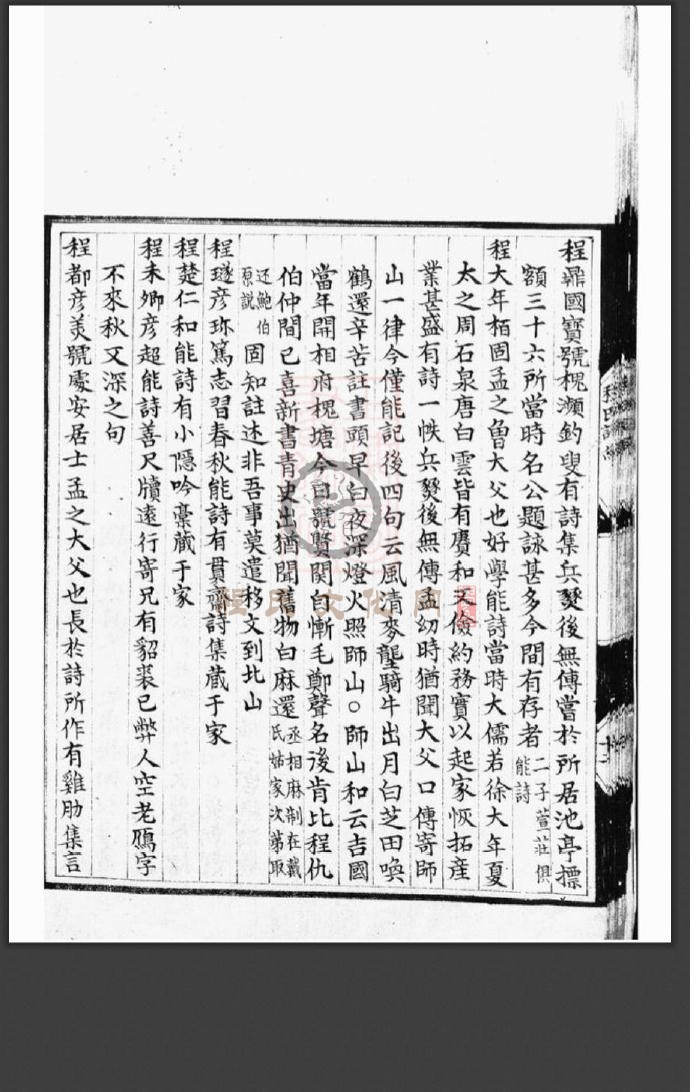 程鼐國寶號槐瀕釣叟有詩集兵燹後無傳嘗於所居池亭摽
額三十六所當時名公題詠甚多今間有存者二子萱莊俱能詩
程大年栢固孟之魯大父也好學能詩當時大儒若徐大年夏
太之周石泉唐白雲皆有賡和又儉約務實以起家恢拓產
業甚盛有詩一帙兵燹後無傳孟幼時猶聞大父口傳寄師
山一律今僅能記後四句云風清麥壟騎牛出月白芝田喚
鶴還辛苦註書頭早白夜深燈火照師山○師山和云吉國
當年開相府槐塘今日號賢関自慚毛鄭聲名後肯比程仇
伯仲間已喜新書青史出猶聞舊物白麻還丞相麻制在戴氏姑家次第取
还鮑伯原說固知註述非吾事莫遣移文到北山
程璲彦珎篤志習春秋能詩有貫齋詩集藏于家
程楚仁和能詩有小隱吟藁藏于家
程未卿彦超能詩善尺牘遠行寄兄有貂裘已弊人空老鴈字
不來秋又深之句
程都彦美號處安居士孟之大父也長於詩所作有雞肋集言